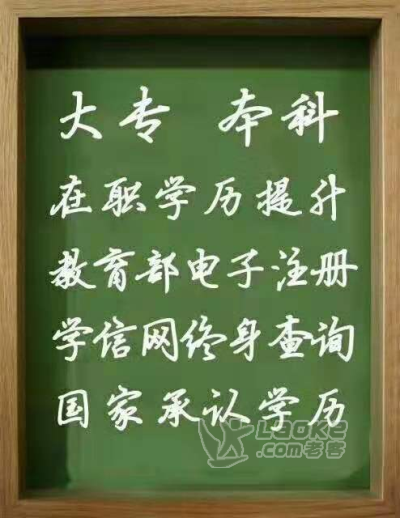 大专 本科
在职学历提升
教育部电子注册
学信网终身查询
国家承认学历
Laoke
.com老客